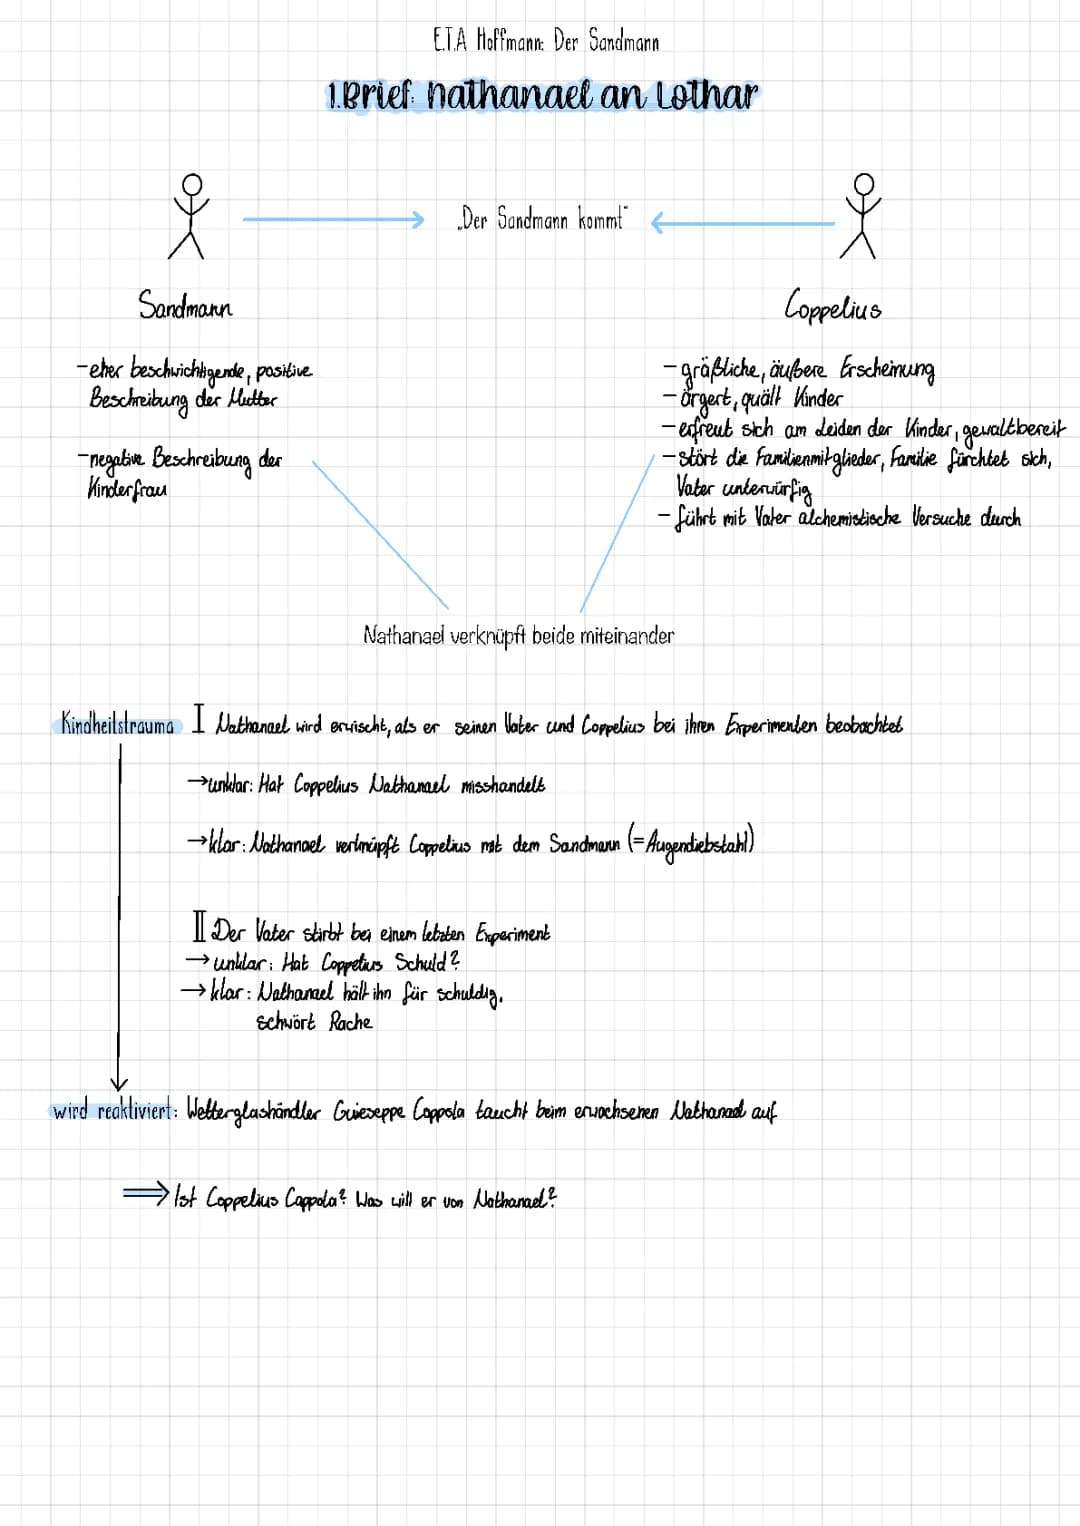 E.T.A Hoffmann: Der Sandmann
1.Brief: Nathanael an Lothar
„Der Sandmann kommt"
Sandmann
Coppelius
-eher beschwichtigende, positive
Beschreibung der Mutter
-negative Beschreibung der
Kinderfrau
-gräßliche, äußere Erscheinung
-ärgert, quält Kinder
-erfreut sich am Leiden der Kinder, gewaltbereit
-stört die Familienmitglieder, Familie fürchtet sich,
Vater unterwürfig
- führt mit Vater alchemistische Versuche durch
Nathanael verknüpft beide miteinander
Kindheitstrauma I Nathanael wird erwischt, als er seinen Vater und Coppelius bei ihren Experimenten beobachtet
→unklar: Hat Coppelius Nathanael misshandelt
→klar: Nathanael verknüpft Coppelius mit dem Sandmann (=Augendiebstahl)
II Der Vater stirbt bei einem letzten Experiment
→unklar: Hat Coppelius Schuld?
→klar: Nathanael hält ihn für schuldig,
schwört Rache
wird reaktiviert: Wetterglashändler Guieseppe Coppola taucht beim erwachsenen Nathanael auf
⇒Ist Coppelius Coppola? Was will er von Nathanael?